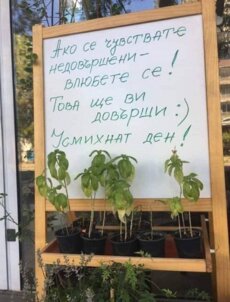 Ако се чувствате
недовършени –
влюбете се!
Това ще ви
довърши :)
Усмихнат ден!